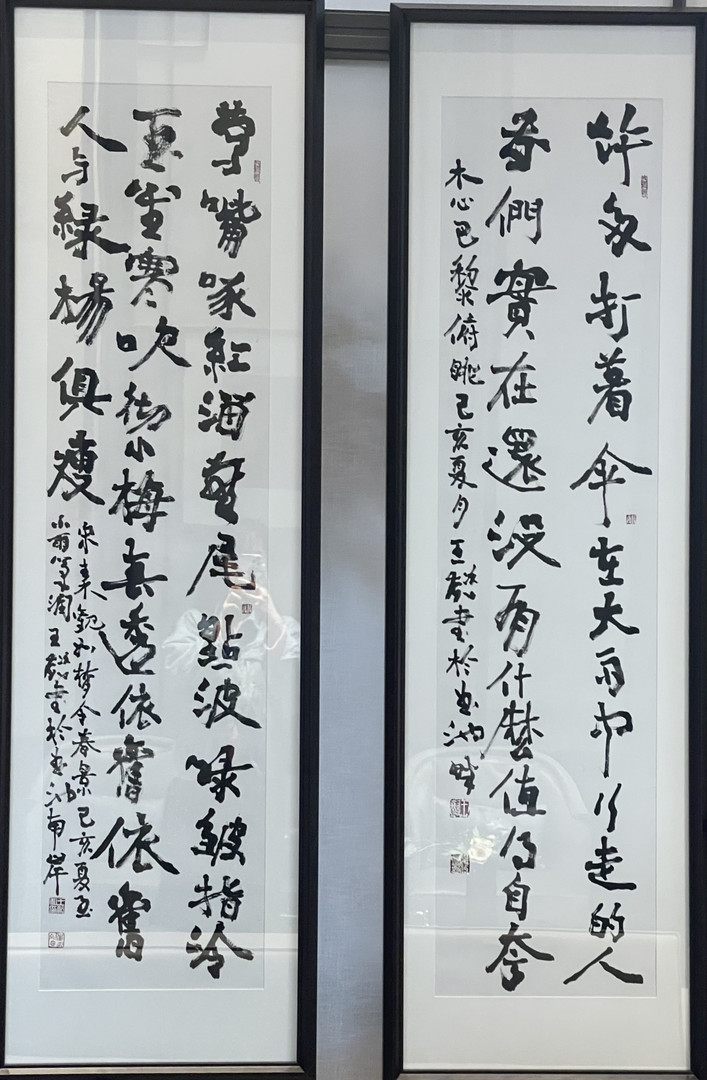 許多打着傘在大雨中行走的人
們實在還没有什麼值得自夸
木心巴黎俯眺己亥夏月王書於池畔
鶯嘴啄紅溜燕尾點波緑皺指冷
玉笙寒吹彻小梅春透依舊依舊
人与緑楊俱瘦
宋秦觀如梦令春景己亥夏至
王書於池南岸